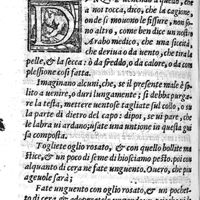 VRE venendo à questo, che
a noi tocca, dico, che la cagione
onde si mouono le fissure, non so-
no altro, come ben dice un nostro
Arabo medico, che una siccità,
che deriua ò da uento, che tira la
pelle, & la secca: ò da freddo, o da calore, o da com
plessione così fatta.
Imaginano alcuni, che, se il presente male è so-
lito a uenire, o duri lungamente; si debbe purga-
re la testa, mettere uentose tagliate sul collo, o su
la parte di dietro del capo: dipoi, se ui pare, che
le labra ui ardano; usate una untione in questa gui
sa composta.
Togliete oglio rosato, & con quello bollite ma
stice, & un poco di seme di biosciamo pesto, poi con
alquanto di cera ne fate unguento. Ouero, che pia
ageuole sarà;
Fate unguento con oglio rosato, & un pochet-
to di cera, &